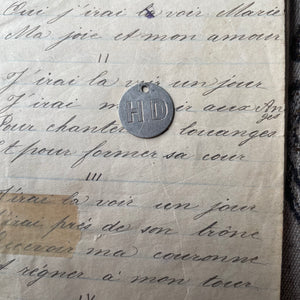 Oui j'irai la voir Marie
Ma joie et mon amour
II
J'irai la voir un jour
J'irai aux An
ges
Pour chanter louanges
Et pour former sa cour
III
J'irai la voir un jour
J'irai près de son trône
ma couronne
Et régner à mon tour
IV
H D